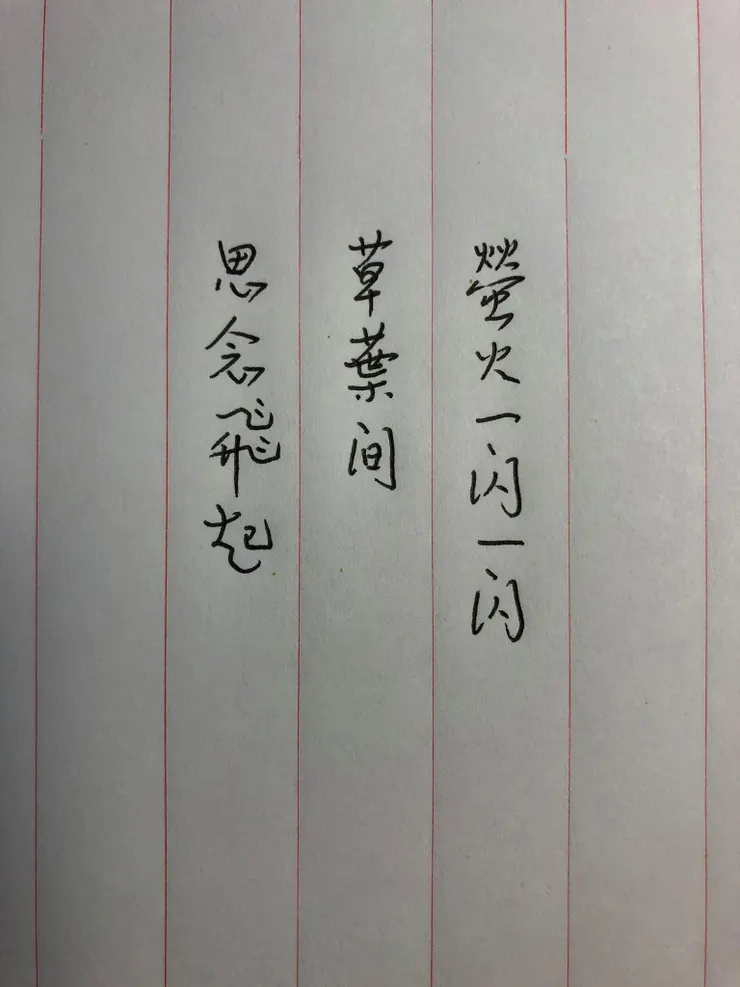 螢火一闪一闪
草葉间
思念飛起